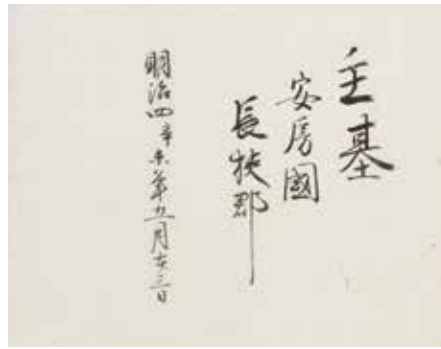 主基
安房國
長狭郡
明治四辛未年五月日